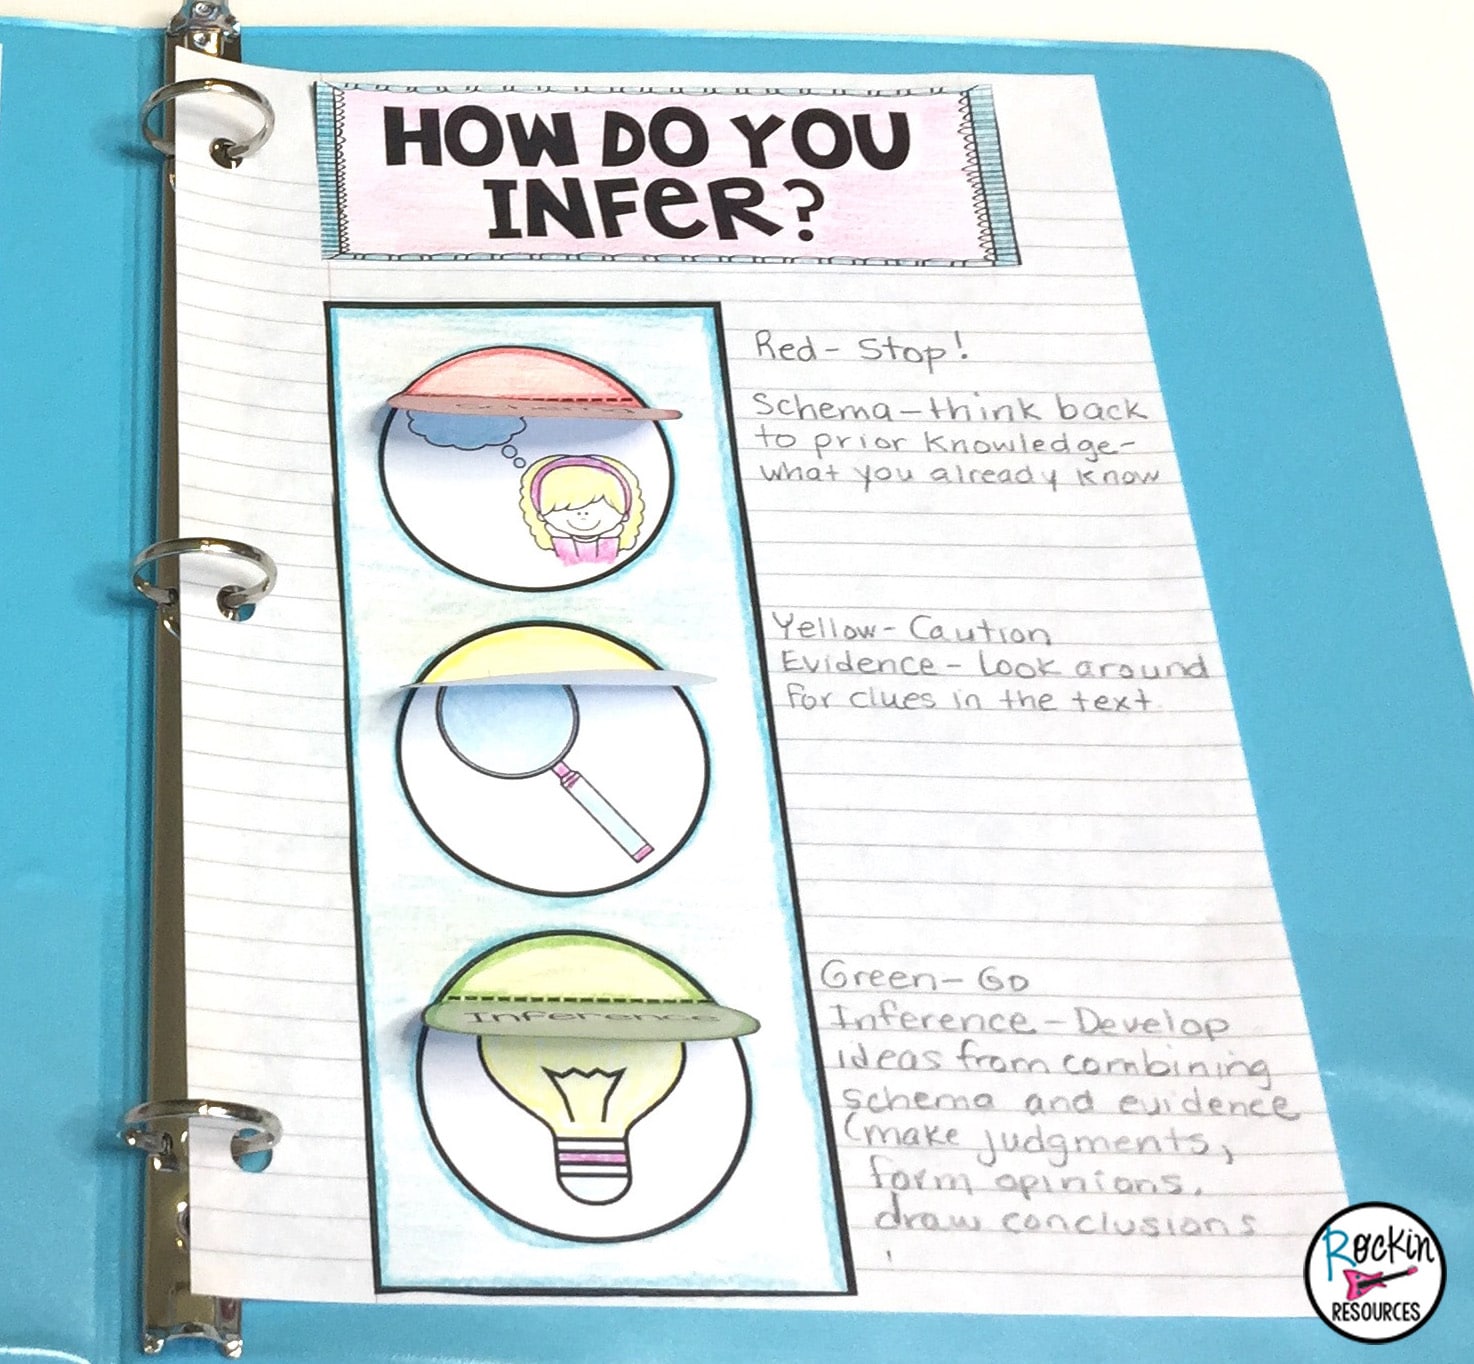 HOW DO YOU
INFER?
Red - Stop!
Schema - think back
to prior knowledge -
what you already know
Yellow - Caution
Evidence - Look around
for clues in the text
Inference
Green - Go
Inference - Develop
ideas from combining
schema and evidence
(make judgments,
form opinions,
draw conclusions
Rockin
RESOURCES